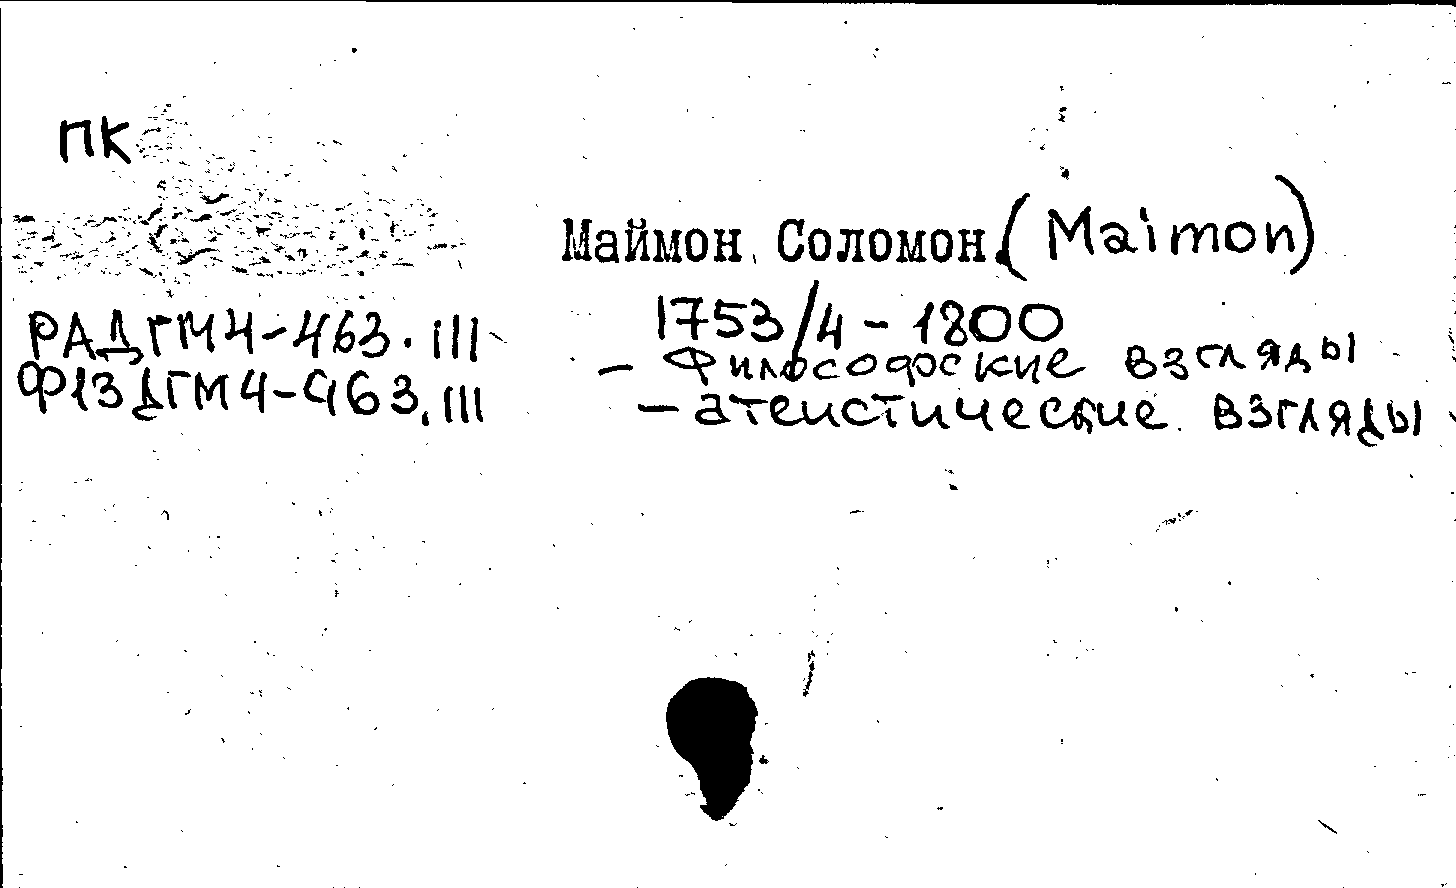 ПК
Маймон, Соломон. (Maimon)
1753/4 - 1800
РАДГМ4-463.III
- Философские взгляды
Ф13ДГМ4-463.III
- атеистические взгляды